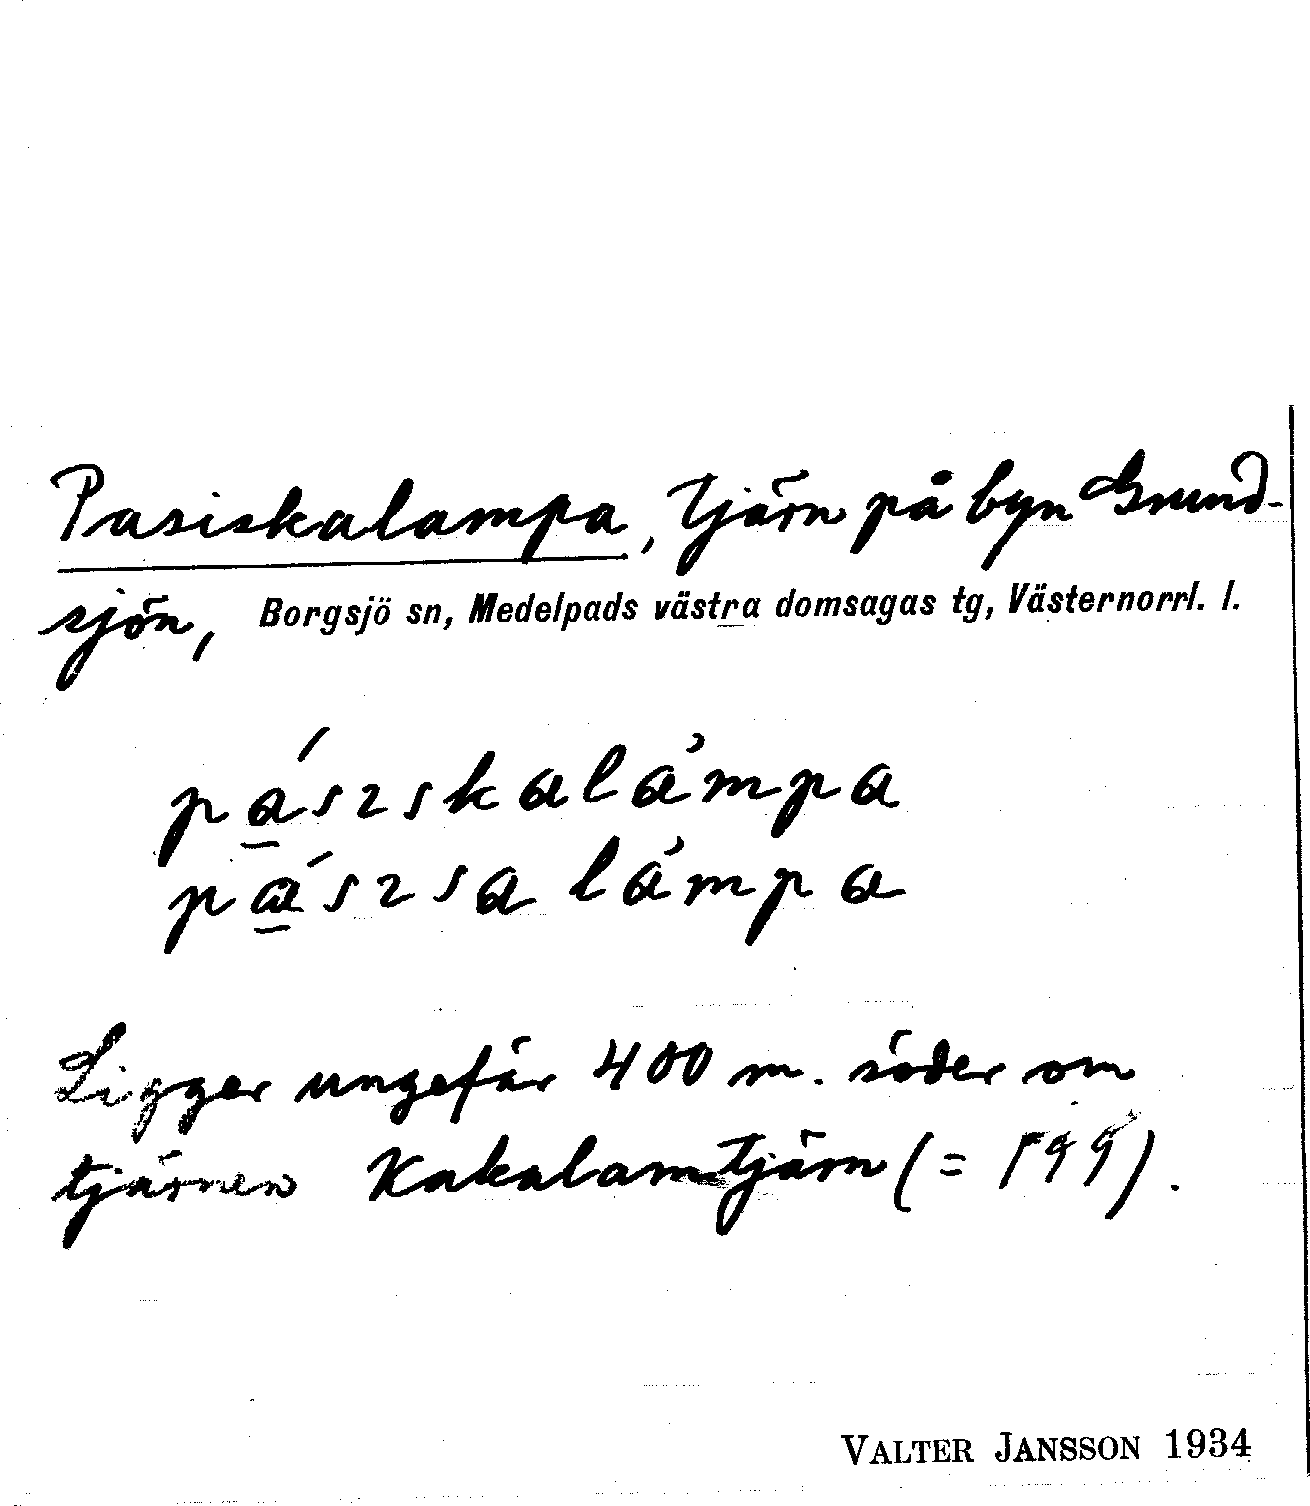 Pasiskalampa, tjärn på byn Grund-
sjön, Borgsjö sn, Medelpads västra domsagas tg, Västernorrl. l.
pa̲´sɩskalàmpa
pa̲´sɩsa làmpa
Ligger ungefär 400 m. söder om
tjärnen Kakalamtjärn (= 199).
VALTER JANSSON 1934